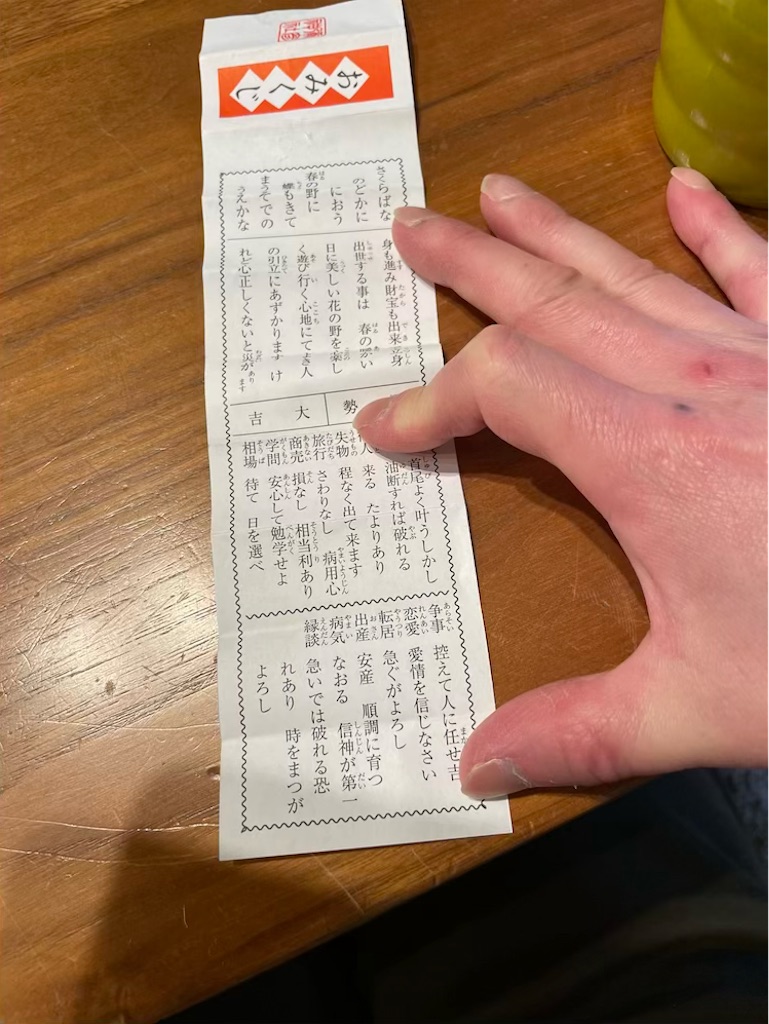 おみくじ
さくらばな
のどかに
におう
春の野に
蝶もきて
まうそでの
うえかな
身も進み財宝も出来立身
出世する事は　春の暖い
日に美しい花の野を楽し
く遊び行く心地にてよき人
の引立にあずかります　け
れど心正しくないと災があります
勢
大吉
首尾よく叶うしかし
油断すれば破れる
来る　たよりあり
失物　程なく出て来ます
旅行　さわりなし　病用心
商売　損なし　相当利あり
学問　安心して勉学せよ
相場　待て　日を選べ
争事　控えて人に任せ吉
恋愛　愛情を信じなさい
転居　急ぐがよろし
出産　安産　順調に育つ
病気　なおる　信神が第一
縁談　急いでは破れる恐
れあり　時をまつが
よろし